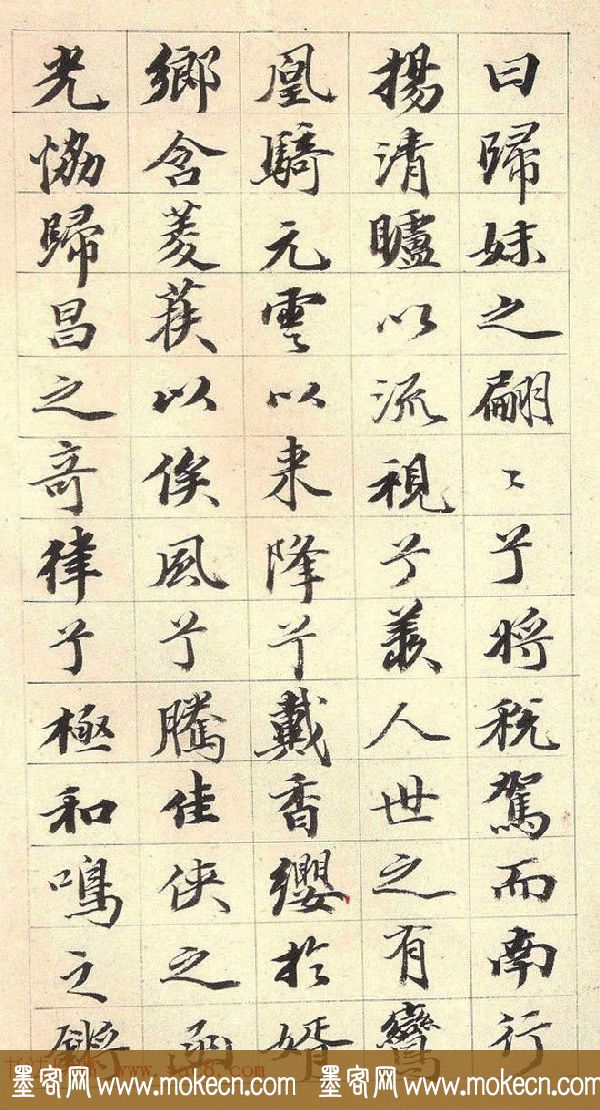 曰歸妹之翩〻兮將稅駕而南行
揚清矑以流視兮羨人世之有鸞
凰騎元雲以來降兮戴香纓於婿
鄉含菱以俟風兮騰佳俠之函
光恊歸昌之竒律兮極和鳴之鏘
墨客网 www.mokecn.com 墨客网 www.mokecn.com